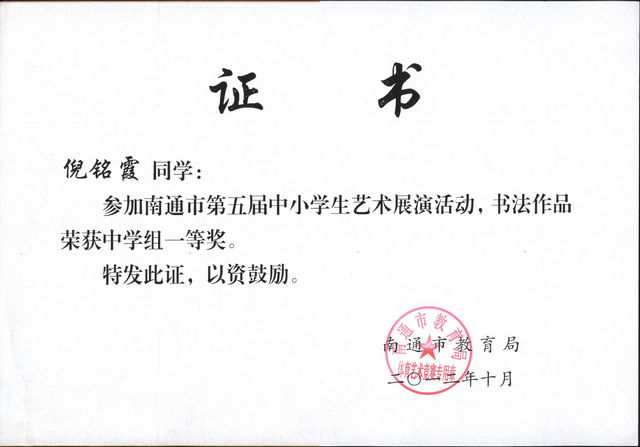 证 书
倪铭霞 同学：
参加南通市第五届中小学生艺术展演活动，书法作品
荣获中学组一等奖。
特发此证，以资鼓励。
南通市教育局
体育艺术竞赛专用章
南通市教育局
二〇一二年十月